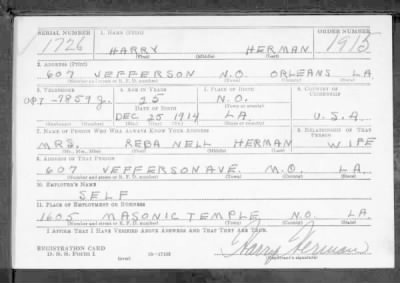 SERIAL NUMBER 1. NAME (Print) ORDER NUMBER
1726 HARRY HERMAN 1915
(First) (Middle) (Last)
2. ADDRESS (Print)
607 JEFFERSON N.O. ORLEANS LA.
(Number and street or R. F. D. number) (Town) (County) (State)
3. TELEPHONE 4. AGE IN YEARS 5. PLACE OF BIRTH 6. COUNTRY OF CITIZENSHIP
UPT-7859J. 25 N.O.
DATE OF BIRTH (Town or county)
DEC 25 1914 LA. U.S.A.
(Mo.) (Day) (Yr.) (State or country)
7. NAME OF PERSON WHO WILL ALWAYS KNOW YOUR ADDRESS 8. RELATIONSHIP OF THAT PERSON
MRS. REBA NELL HERMAN WIFE
(Mr., Mrs., Miss) (First) (Middle) (Last)
9. ADDRESS OF THAT PERSON
607 JEFFERSON AVE. N.O. LA.
(Number and street or R. F. D. number) (Town) (County) (State)
10. EMPLOYER'S NAME
SELF
11. PLACE OF EMPLOYMENT OR BUSINESS
1605 MASONIC TEMPLE N.O. LA
(Number and street or R. F. D. number) (Town) (County) (State)
I AFFIRM THAT I HAVE VERIFIED ABOVE ANSWERS AND THAT THEY ARE TRUE.
REGISTRATION CARD Harry Herman
D. S. S. Form 1 (over) 16—17105 (Registrant's signature)